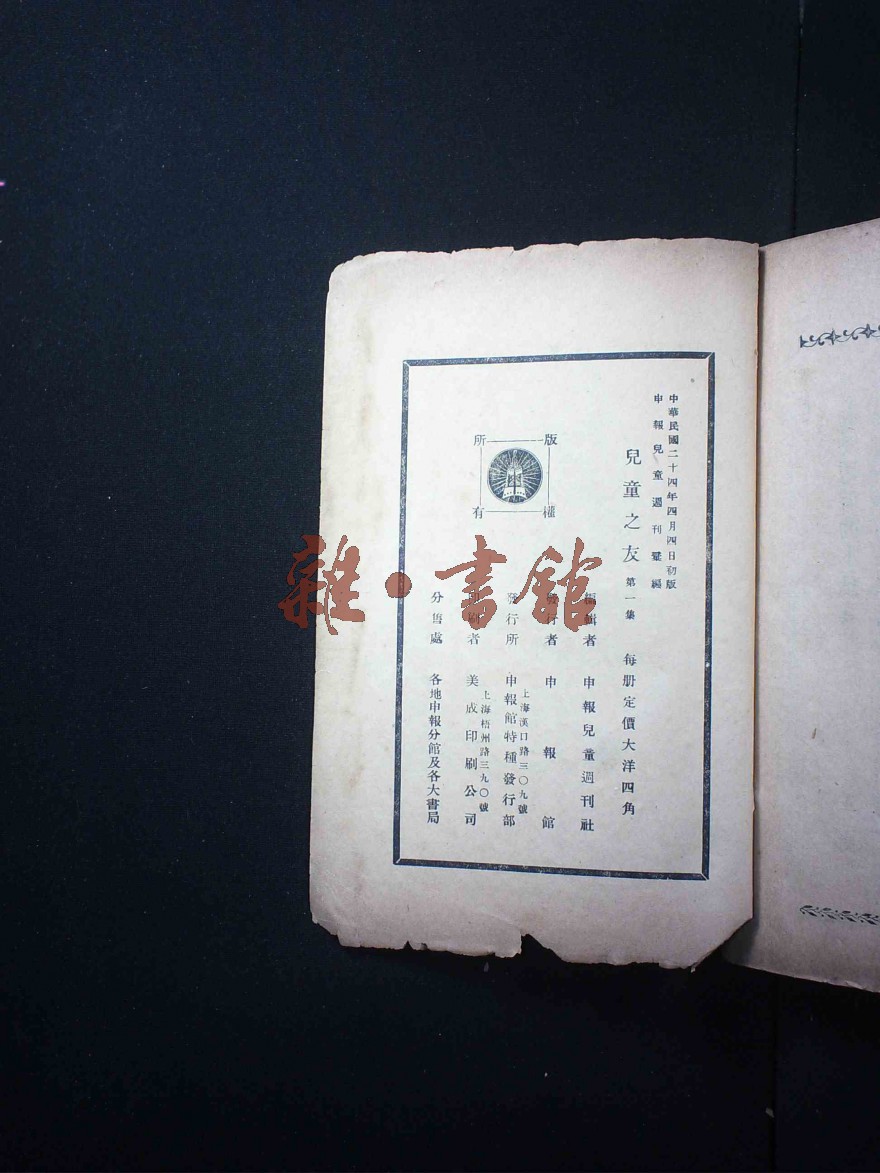 中華民國二十四年四月四日初版
申報兒童週刊彙編
兒童之友 第一集 每册定價大洋四角
編輯者 申報兒童週刊社
發行者 申報館
上海漢口路三〇九號
發行所 申報館特種發行部
上海梧州路三九〇號
印刷者 美成印刷公司
分售處 各地申報分館及各大書局
版權所有
雜·書館